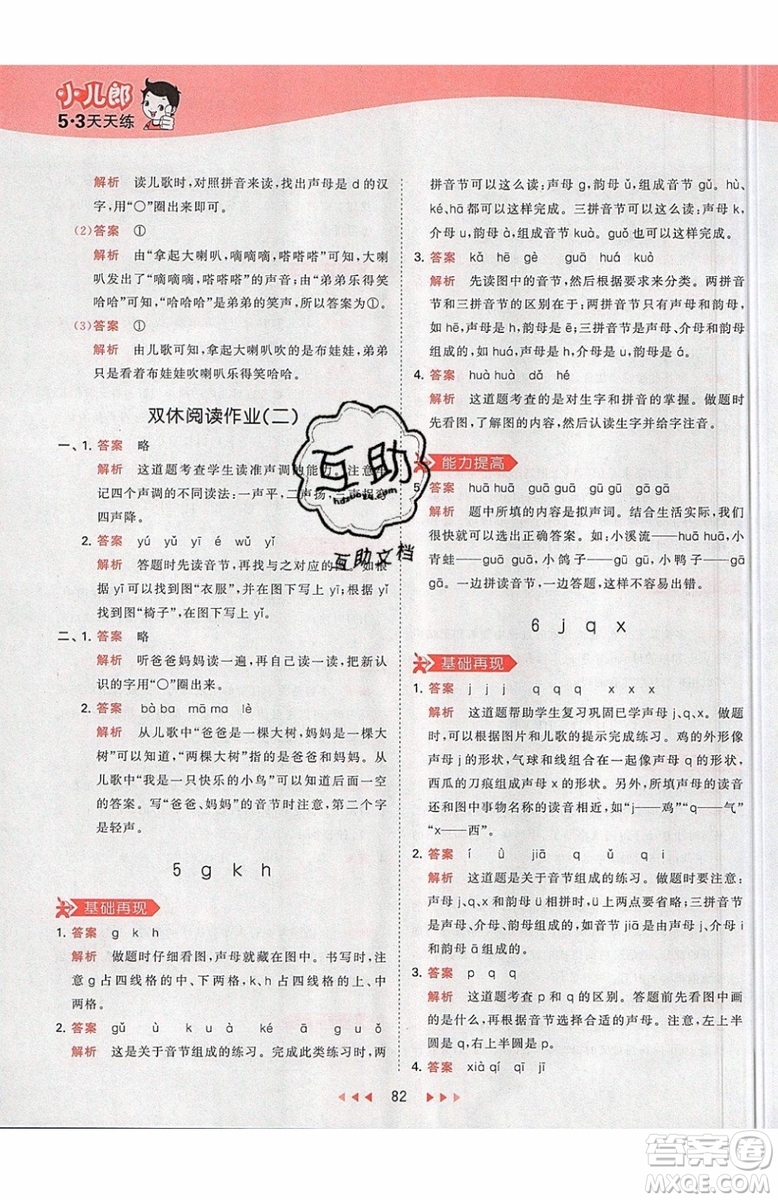 小儿郎
5·3天天练
解析 读儿歌时，对照拼音来读，找出声母是 d 的汉
字，用“○”圈出来即可。
(2) 答案 ①
解析 由“拿起大喇叭，嘀嘀嘀，嗒嗒嗒”可知，大喇
叭发出了“嘀嘀嘀，嗒嗒嗒”的声音；由“弟弟乐得笑
哈哈”可知，“哈哈哈”是弟弟的笑声，所以答案为①。
(3) 答案 ①
解析 由儿歌可知，拿起大喇叭吹的是布娃娃，弟弟
只是看着布娃娃吹喇叭，所以答案为①。
双休阅读作业(二)
一、1. 答案 略
解析 这道题考查学生读准声调地能力。注意牢
记四个声调的不同读法：一声平，二声扬，三声拐弯
四声降。
2. 答案 yú yǔ yī yǐ
解析 答题时先读音节，再与之对应的
找到图“衣服”，在图下写上 yī；根据 yǐ
找到图“椅子”，在图下写上 yǐ。
二、1. 答案 略
解析 听爸爸妈妈读一遍，再读一读，把新认
识的字用“○”圈出来。
2. 答案 bà ba mā ma lè
解析 从儿歌中“爸爸是一棵大树，妈妈是一棵大
树”可以知道，“两棵大树”是爸爸和妈妈。同样的，
从儿歌中“我是一只快乐的小鸟”可以知道后面一空
的答案。写“爸爸、妈妈”的音节时应注意，第二个字
是轻声。
5 g k h
基础再现
1. 答案 g k h
解析 做题时仔细看图，声母就藏在图中。书写时，注
意 g 占四线格的中、下两格，k、h 占四线格的上、中
两格。
2. 答案 gǔ ù k ké ā g u ǒ
解析 这是关于音节组成的练习。完成此类练习时，两
拼音节可以这么读：声母 g，韵母 ǔ，组成音节 gǔ。hù、
ké、hā 用同样的方法完成。三拼音节可以这么读：声母 k，
介母 u，韵母 à，组成音节 kuà。guǒ 也可以这样完成。
3. 答案 kǎ hē gē guā huá kuò
解析 先读图中的音节，然后根据要求来分类。两拼音
节和三拼音节的区别在于：两拼音节只有声母和韵母，
如 hē，声母是 h，韵母是 ē；三拼音节由声母、介母和韵母
组成，如 huá，声母是 h，介母是 u，韵母是 á。
4. 答案 huà huà dǎ hé
解析 这道题考查的是对生字和拼音的掌握。做题时
先看图，了解图的内容，然后认读生字并给字注音。
能力提高
5. 答案 huā huā guā guā gū gū gā gā
解析 题中所填的是拟声词。结合生活实际，我们可以
很快选出正确答案。如：小溪流——huā huā，小青
蛙——guā guā，小鸽子——gū gū，小鸭子——gā
gā。一边拼读音节，一边答题，这样不容易出错。
6 j q x
基础再现
1. 答案 j j j q q q x x x
解析 这道题帮助学生复习巩固已学声母 j、q、x。做题
时可以根据图片和儿歌的提示完成填写。鸡的外形像
声母 j 的形状，气球和线组合在一起像声母 q 的形状，
西瓜的刀痕组成声母 x 的形状。另外，所填声母的读音
还和图中事物名称的读音差不多，如“j——鸡”“q——气”
“x——西”。
2. 答案
解析 这道题是关于音节组成的练习。做题时要注意：
声母 j、q、x 和韵母 ü 相拼时，ü 上两点要省略；三拼音节
由声母、介母和韵母组成，如三拼音节 jiā 由声母 j、介母
i、韵母 ā 组成。
3. 答案 p q q p
解析 这道题考查 p 和 q 的区别。答题前先看图中画
的是什么，再根据音节选择合适的声母。注意，左上半
圆是 q，右上半圆是 p。
4. 答案 xià qí qī jī
82
互助
互助文档
答案圈
MXQE.COM